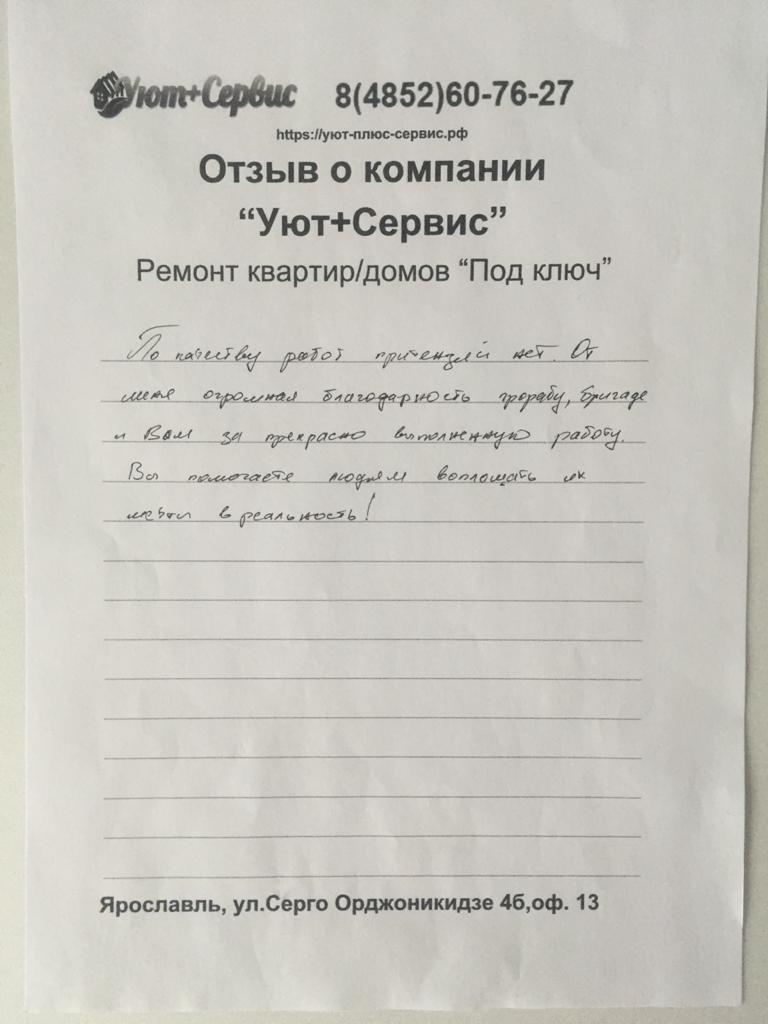 Уют+Сервис 8(4852)60-76-27
https://уют-плюс-сервис.рф
Отзыв о компании
“Уют+Сервис”
Ремонт квартир/домов “Под ключ”
По качеству работ притензий нет. От
меня огромная благодарность прорабу, бригаде
и Вам за прекрасно выполненную работу.
Вы помогаете людям воплощать их
мечты в реальность!
Ярославль, ул.Серго Орджоникидзе 4б,оф. 13